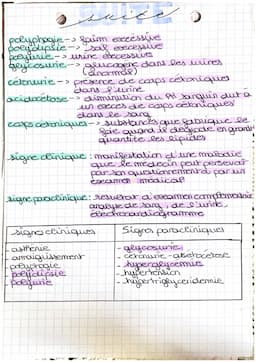 suite
polyphagie -> faim excessive
polydipsie -> soif excessive
polyurie -> urine excessive
glycosurie -> glucagore dans les urines
(anormal)
cétonurie -> présence de corps cétoniques
dans l'urine
acidocétose -> diminution du PH sanguin dut à
un excès de corps cétoniques
dans le sang
corps cétoniques -> substances que fabrique le
foie quand il dégrade en grande
quantité les lipides
signe clinique : manifestation d'une maladie
que le médecin peut percevoir
par son questionnement ou par un
examen médical
signe paraclinique : résultat d'examen complémentaire
analyse de sang, de l'urine,
électrocardiogramme
signes cliniques
- asthénie
- amaigrissement
- polyphagie
- polydipsie
- polyurie
Signes paracliniques
- glycosurie
- cétonurie - acétocétose
- hyperglycémie
- hypertension
- hypertriglycéridémie